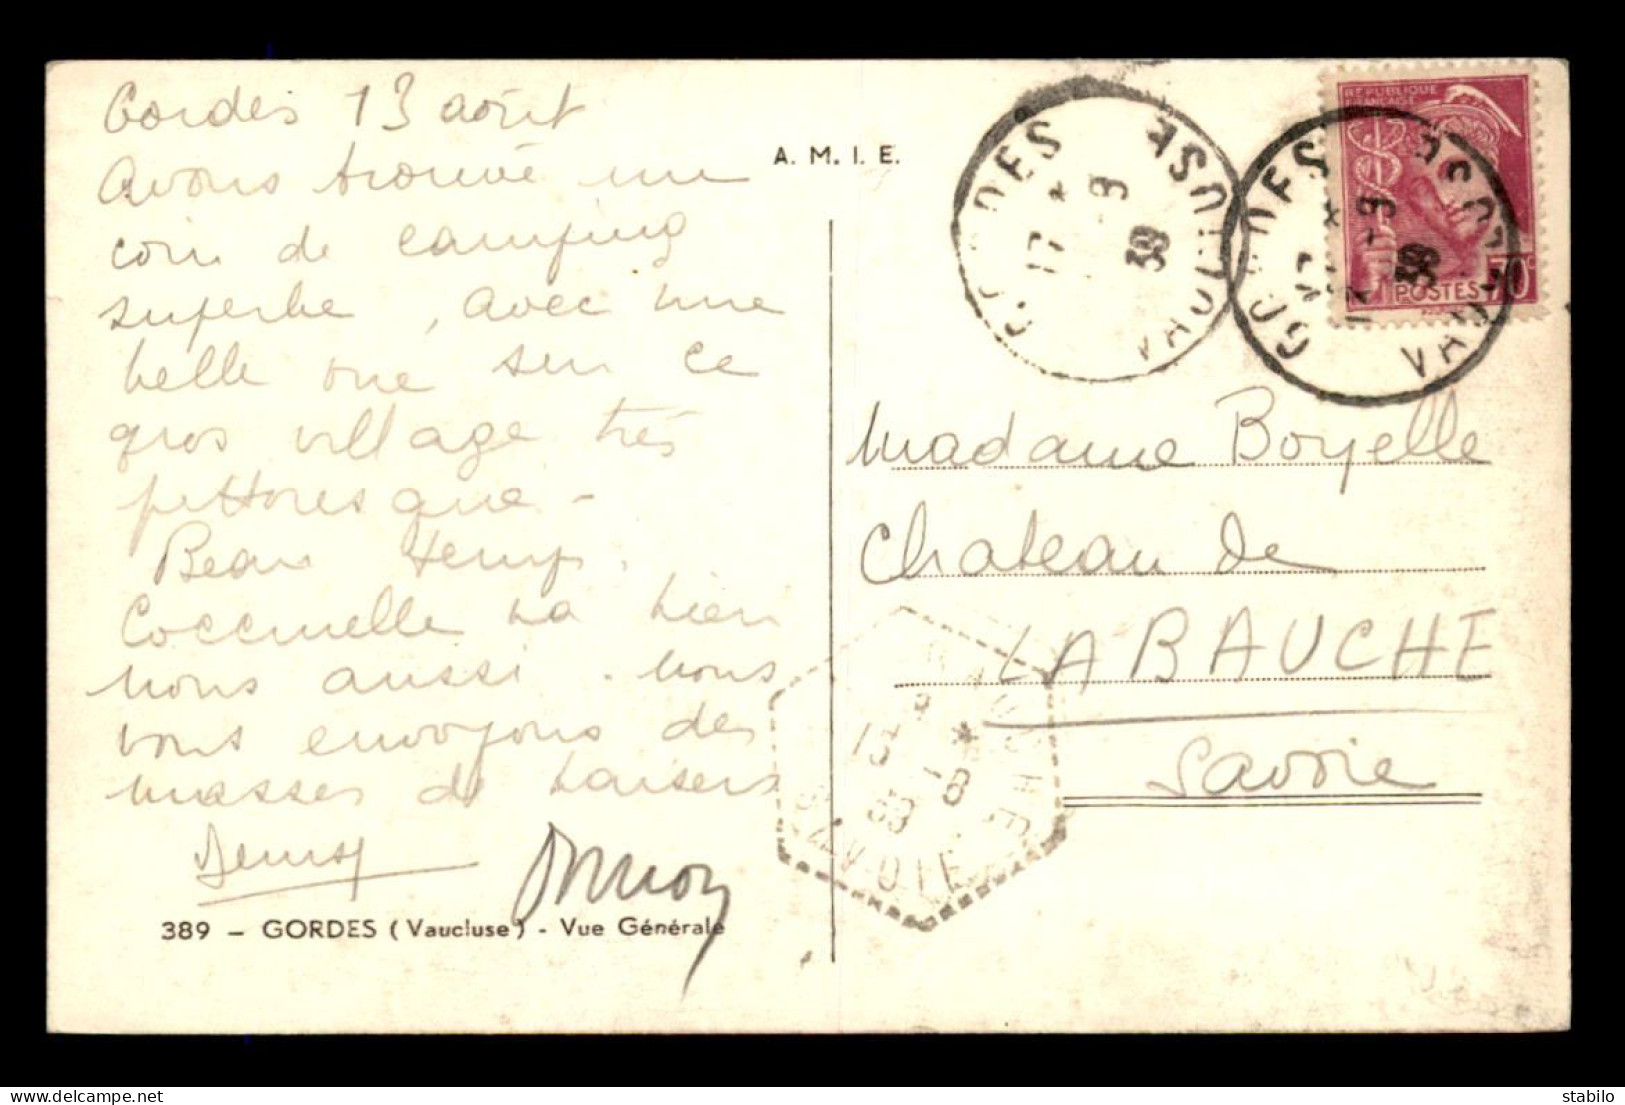 Gordes 13 août
Avons trouvé un
coin de camping
superbe, avec une
belle vue sur ce
gros village très
pittoresque -
Beau temps.
Coccinelle va bien
nous aussi. Nous
vous envoyons des
masses de baisers
389 - GORDES (Vaucluse) - Vue Générale
A. M. I. E.
GORDES
VAUCLUSE
17 *
-9
38
REPUBLIQUE
FRANÇAISE
POSTES 70c
GORDES
VAUCLUSE
17 *
-9
38
Madame Boyelle
Chateau de
LA BAUCHE
Savoie
SAVOIE
delcampe.net
stabilo